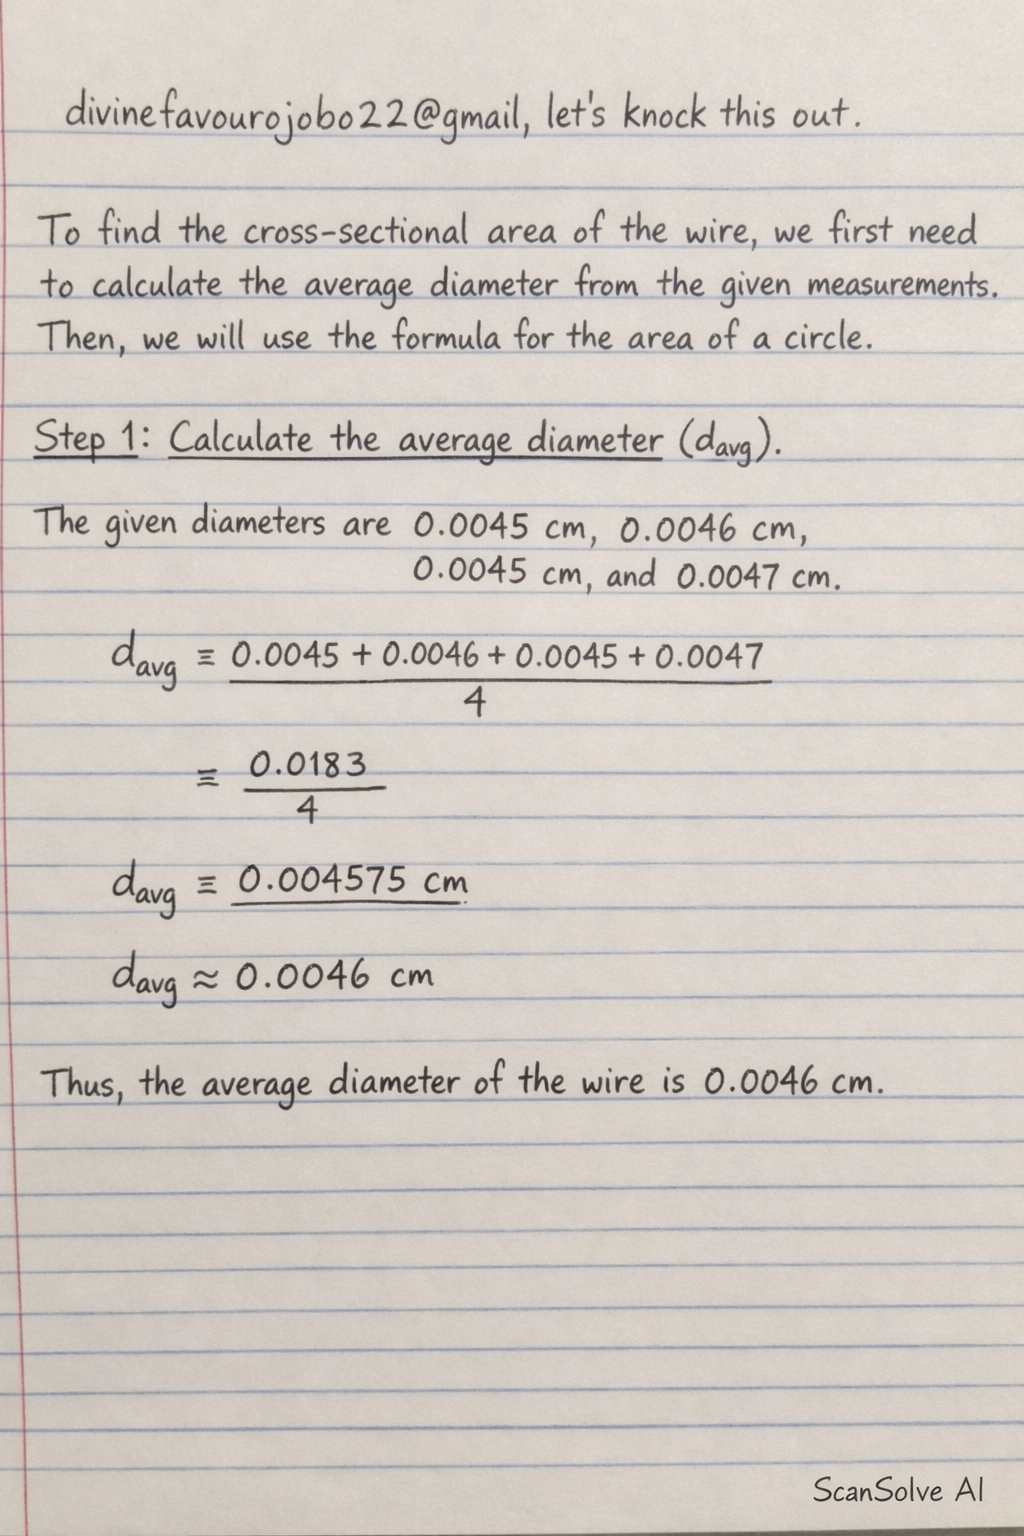 divinefavourojobo22@gmail, let's knock this out.
To find the cross-sectional area of the wire, we first need
to calculate the average diameter from the given measurements.
Then, we will use the formula for the area of a circle.
Step 1: Calculate the average diameter (davg).
The given diameters are 0.0045 cm, 0.0046 cm,
0.0045 cm, and 0.0047 cm.
davg ≡ 0.0045 + 0.0046 + 0.0045 + 0.0047
4
≡ 0.0183
4
davg ≡ 0.004575 cm
davg ≈ 0.0046 cm
Thus, the average diameter of the wire is 0.0046 cm.
ScanSolve AI